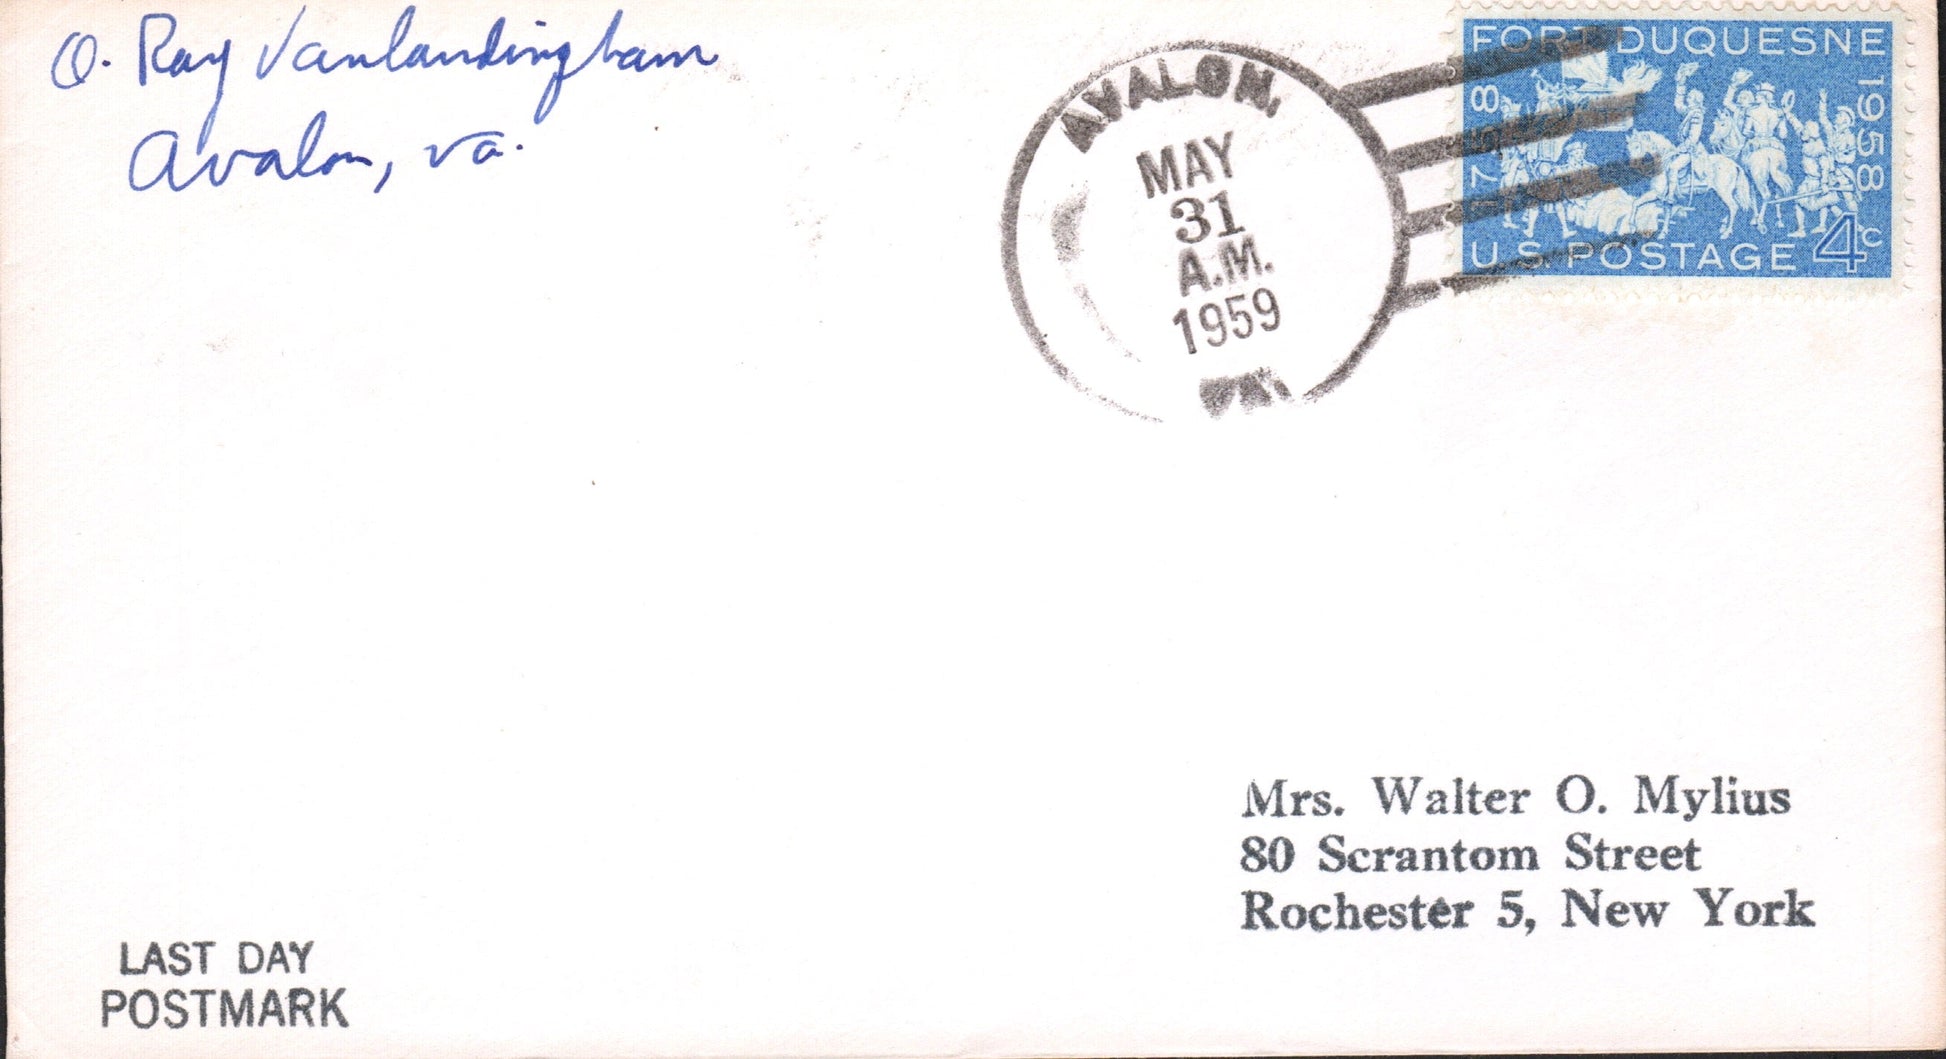 O. Ray Vanlandingham
Avalon, Va.
AVALON,
MAY
31
A.M.
1959
VA.
FORT DUQUESNE
1758
1958
U.S. POSTAGE 4c
Mrs. Walter O. Mylius
80 Scrantom Street
Rochester 5, New York
LAST DAY
POSTMARK